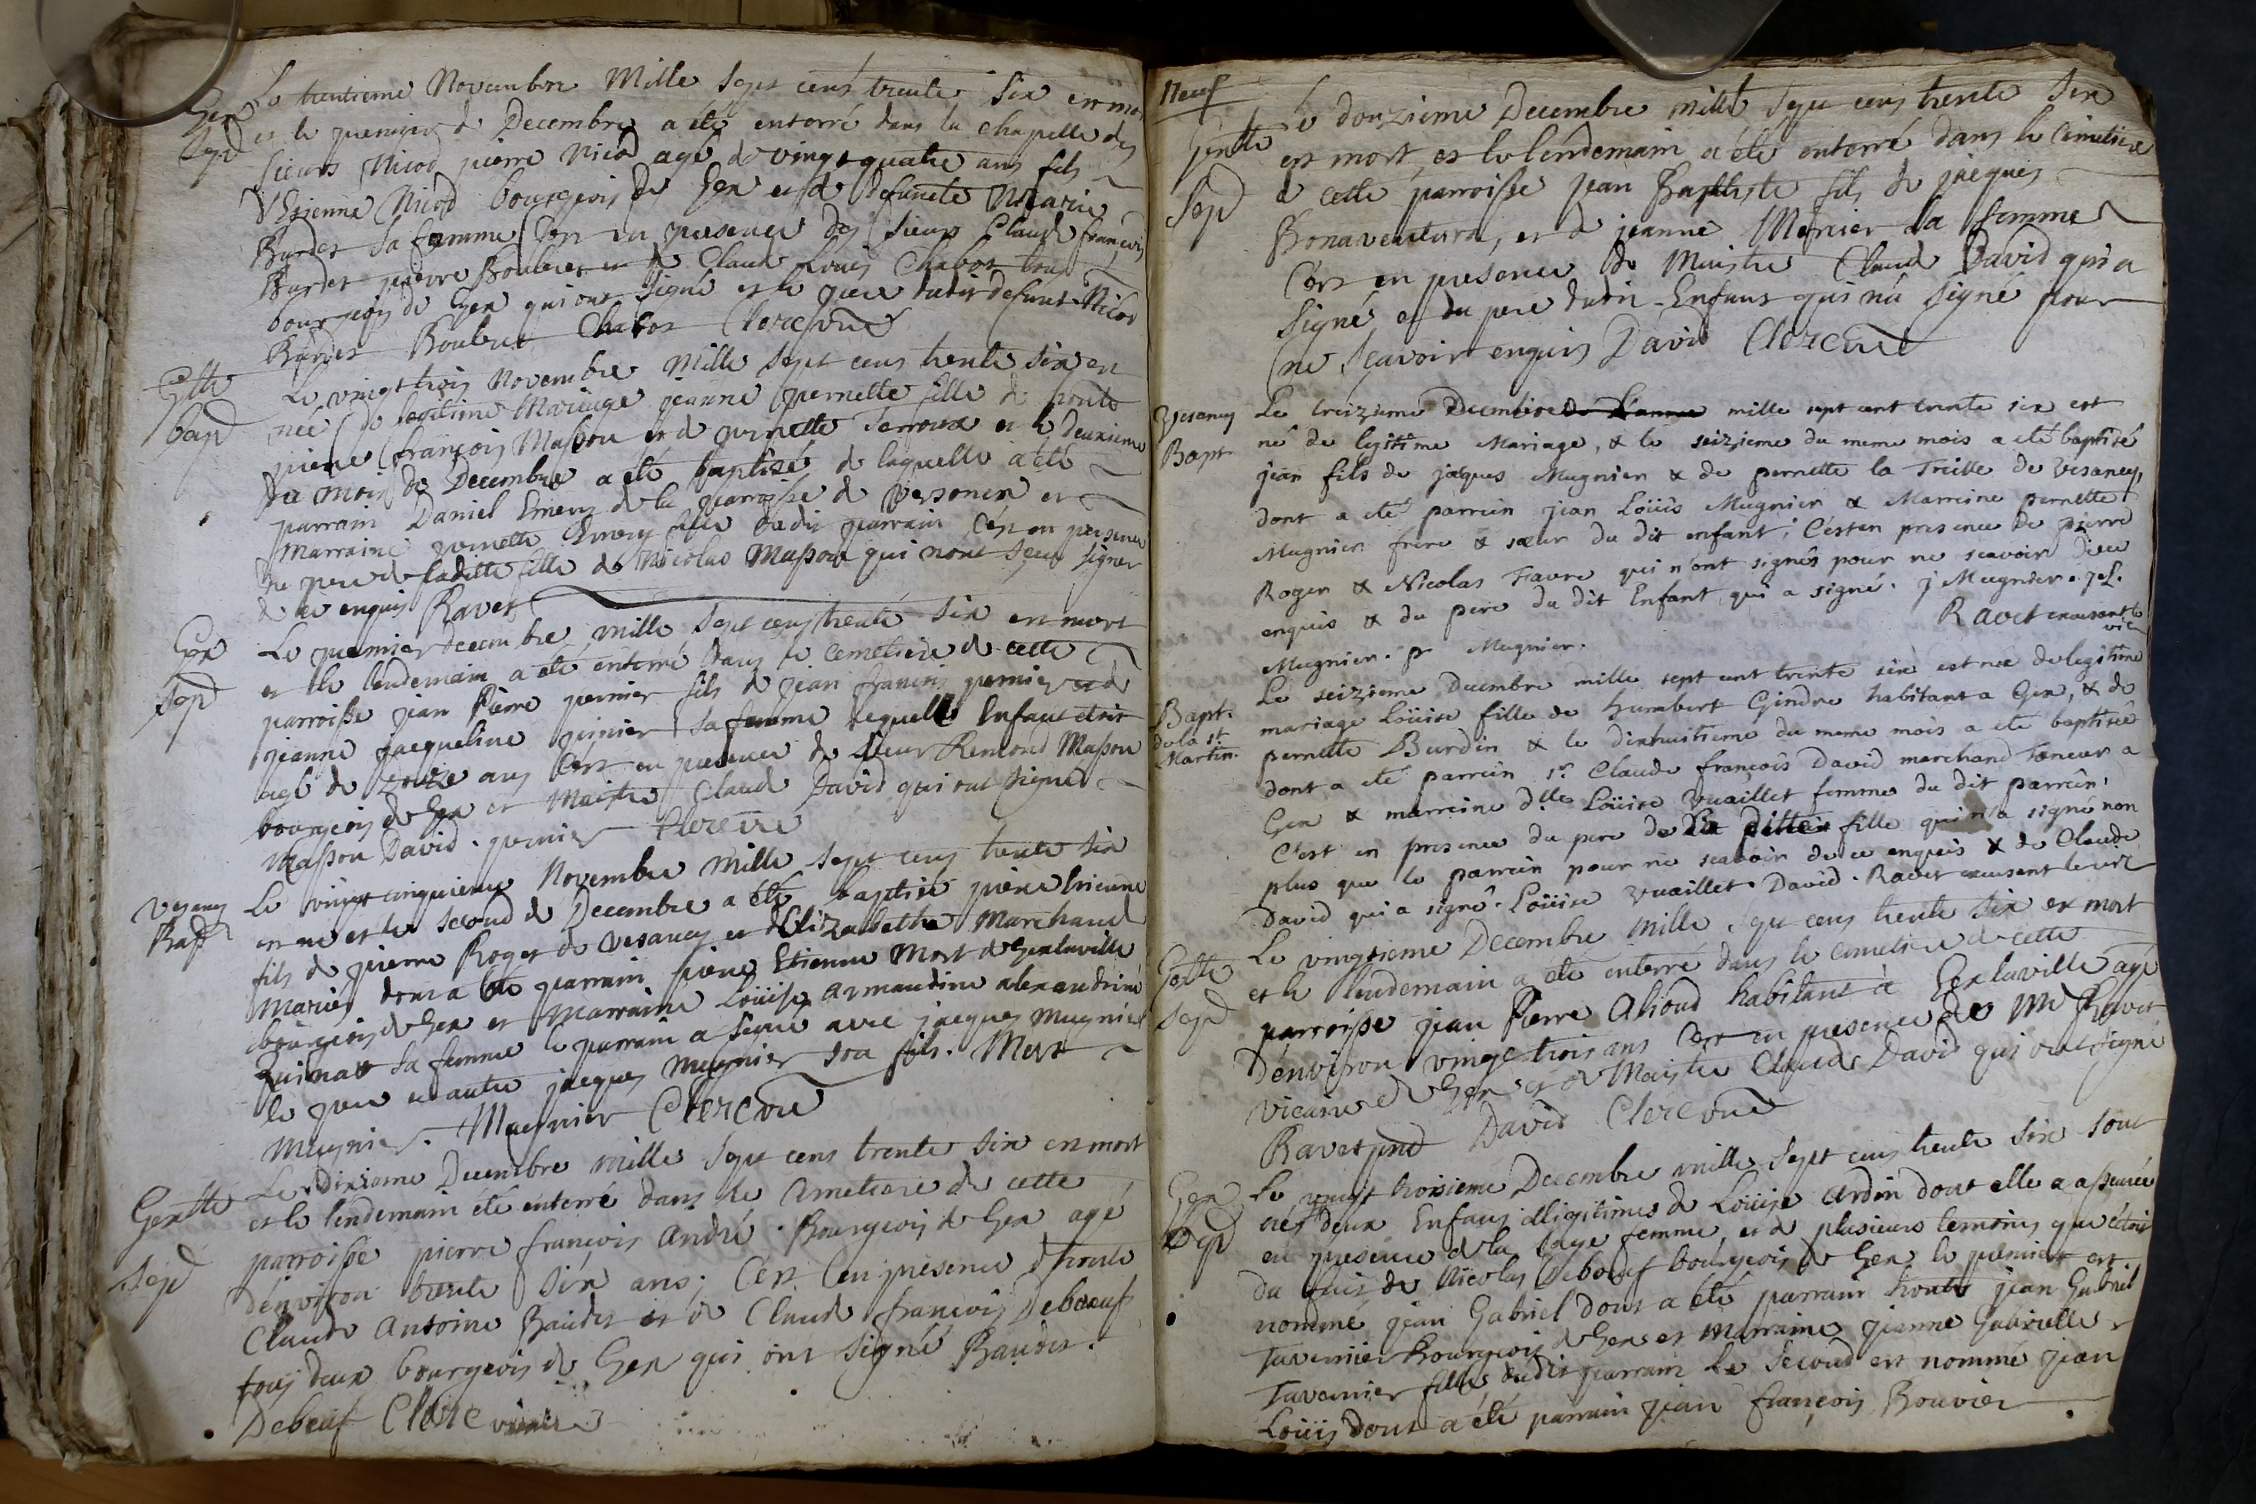 Gex
Sep
Le trentieme Novembre Mille Sept cens trente Six est mo
et le premier de Decembre a été enterré dans la chapelle des
Sieurs Nicod pierre Nicod agé de vingt quatre ans fils
d'Etienne Nicod bourgeois de Gex et de defuncte Marie
Burdet sa femme C'est en presence des Sieurs Claude françois
Burdet pierre Bouleret et de Claude Louis Chabot tous
bourgeois de Gex qui ont signé et le pere dudit defunt Nicod
Burdet Chabot Clerc curé
Gex lle
bap
Le vingt trois Novembre Mille Sept cens trente six est
née de legitime Mariage jeanne pernette fille de honte
pierre françois Masson et de pernette Terroux et le deuxieme
du mois de Decembre a été baptisée de laquelle a été
parrain Daniel Emery de la parroisse de Versonex et
marraine pernette Emery fille dudit parrain C'est en presence
du pere de ladite fille de Nicolas Masson qui n'ont sceu signer
de ce enquis Ravet
Gex
Sep
Le premier decembre mille Sept cens trente six est mort
et le lendemain a été enterré dans le cemetiere de cette
parroisse jean Pierre pernier fils de jean francois pernier et de
jeanne jacqueline pernier sa femme lequel Enfant etoit
agé de douze ans C'est en presence de Sieur Remond Masson
bourgeois de Gex et Maitre Claude David qui ont signé
Masson David . pernier Clerc curé
Vesancy
Bap
Le vingt cinquieme Novembre Mille Sept cens trente six
est né et le second de Decembre a été baptisé pierre Etienne
fils de pierre Roget de Vesancy et d'Elizabethe Marchand
Mariés dont a été parrain pierre Etienne Mort de Gex la ville
bourgeois de Gex et Marraine Loüise armandine alexandrine
quinat sa femme le parrain a signé avec jacques Mugnier
le pere et autre jacques Mugnier son fils . Mort
Mugnier . Mugnier Clerc curé
Gex lle
Sep
Le dixieme Decembre mille Sept cens trente six est mort
et le lendemain été enterré dans le Cimetiere de cette
parroisse pierre françois André . Bourgeois de Gex agé
d'environ trente six ans ; C'est en presence d'honte
Claude Antoine Baudet et de Claude françois Deboeuf
tous deux bourgeois de Gex qui ont signé Baudet .
Deboeuf Clerc curé
Neuf
Gex lle
Sep
Le douzieme Decembre mille Sept cens trente Six
est mort et le lendemain a été enterré dans le Cimetiere
de cette parroisse jean Baptiste fils de jacques
Bonaventure, et de jeanne Monier sa femme
C'est en presence de Maistre Claude David qui a
signé et du pere dudit Enfant qui n'a signé pour
ne sçavoir enquis David Clerc curé
Vesancy
Bapt
Le treizieme Decembre mille sept cent trente six est
né de legitime Mariage, & le seizieme du meme mois a été baptisé
jean fils de jaques Mugnier & de pernette la Treille de Vesancy,
dont a eté parrein jean Loüis Mugnier & Marreine pernette
Mugnier frere & sœur du dit enfant ; C'est en presence de pierre
Roger & Nicolas Favre qui n'ont signés pour ne scavoir de ce
enquis & du pere du dit Enfant qui a signé . j Mugnier . j L.
Mugnier . p Mugnier . Ravet exercent le
vic
Bapt.
de la st
Martin.
Le seizieme Decembre mille sept cent trente six est née de legitime
mariage Loüise fille de humbert Gindre habitant a Gex, & de
pernette Burdin & le dixhuitieme du meme mois a eté baptisée
dont a eté parrein sr Claude françois David marchand Taneur a
Gex & marreine dlle Loüise Vuaillet femme du dit parrein,
C'est en presence du pere de la ditte fille qui n'a signé non
plus que le parrein pour ne scavoir de ce enquis & de Claude
David qui a signé . Loüise Vuaillet . David . Ravet exercent le vic
Gex lle
Sep
Le vingtieme Decembre Mille Sept cens trente Six est mort
et le lendemain a été enterré dans le cimetiere de cette
parroisse jean Pierre Alioud habitant à Gex la ville agé
d'environ vingt trois ans C'est en presence de Mr Ravet
vicaire de Gex et de Maistre Claude David qui ont signé
Ravet David Clerc curé
Gex
Bap
Le vingt troisieme Decembre mille Sept cens trente Six sont
nés deux Enfans illigitimes de Loüise ardin dont elle a asseurée
en presence de la sage femme, et de plusieurs temoins que c'étoit
du fait de Nicolas Deboeuf bourgeois de Gex le premier est
nommé jean Gabriel dont a été parrain honte jean Gabriel
Tavernier Bourgeois de Gex et Marraine jeanne Gabrielle
Tavernier fille dudit parrain Le Second est nommé jean
Loüis dont a été parrain jean françois Bouvier